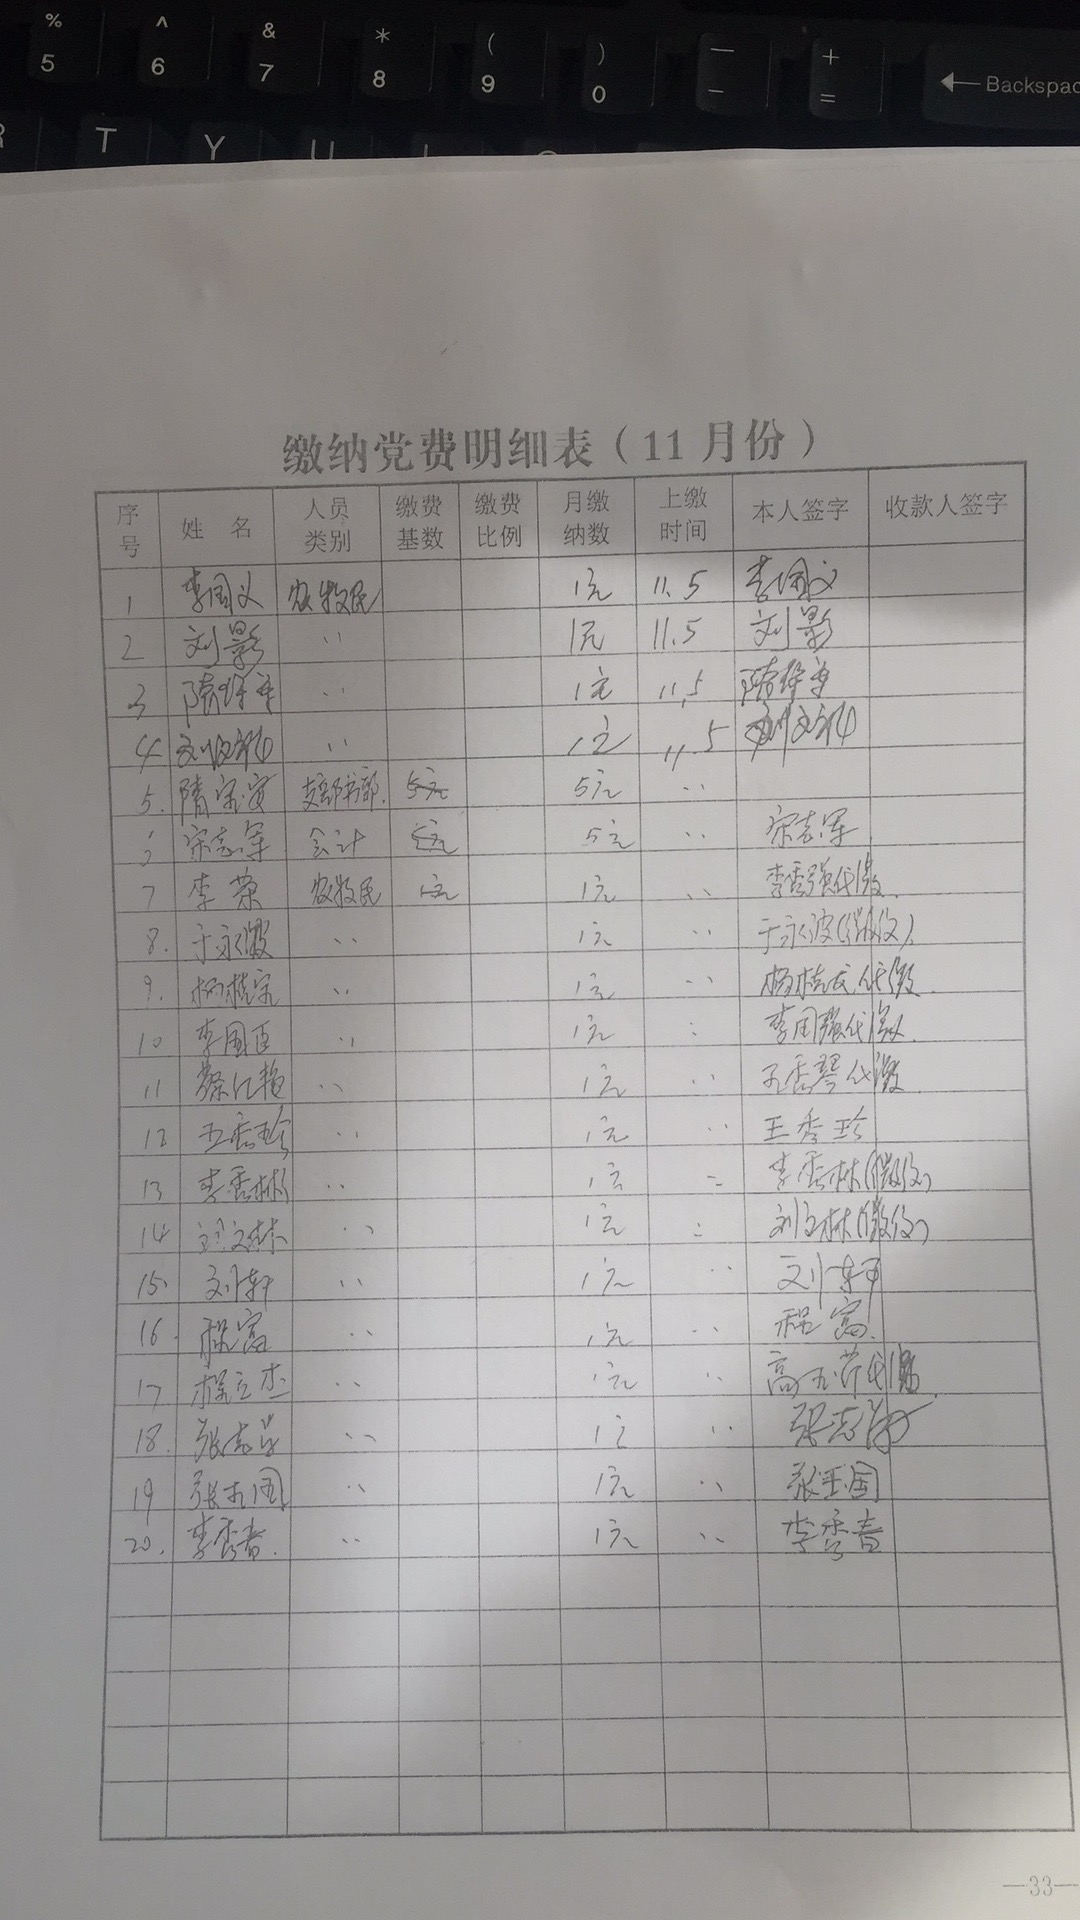 % ^ & * ( ) — +
5 6 7 8 9 0 - = Backspac
R T Y U
缴纳党费明细表（11月份）
序号 姓 名 人员类别 缴费基数 缴费比例 月缴纳数 上缴时间 本人签字 收款人签字
1 李国义 农牧民 1元 11.5 李国义
2 刘影 〃 1元 11.5 刘影
3 〃 1元 11.5
4 〃 1元 11.5
5. 5元 5元 〃
宋志军 会计 5元 5元 〃 宋志军
7 李荣 农牧民 1元 1元 〃 李秀强代缴
8. 于永波 〃 1元 〃 于永波
9. 〃 1元 〃 代缴
10 李国臣 〃 1元 〃 李国强代缴
11 〃 1元 〃 孔秀琴代缴
12 王秀珍 〃 1元 〃 王秀珍
13 李秀林 〃 1元 〃 李秀林
14 刘文林 〃 1元 〃 刘文林
15 刘轩 〃 1元 〃 刘轩
16. 程富 〃 1元 〃 程富
17 程立杰 〃 1元 〃 高玉芹代缴
18. 〃 1元 〃
19 张玉国 〃 1元 〃 张玉国
20. 李秀春 〃 1元 〃 李秀春
—33—